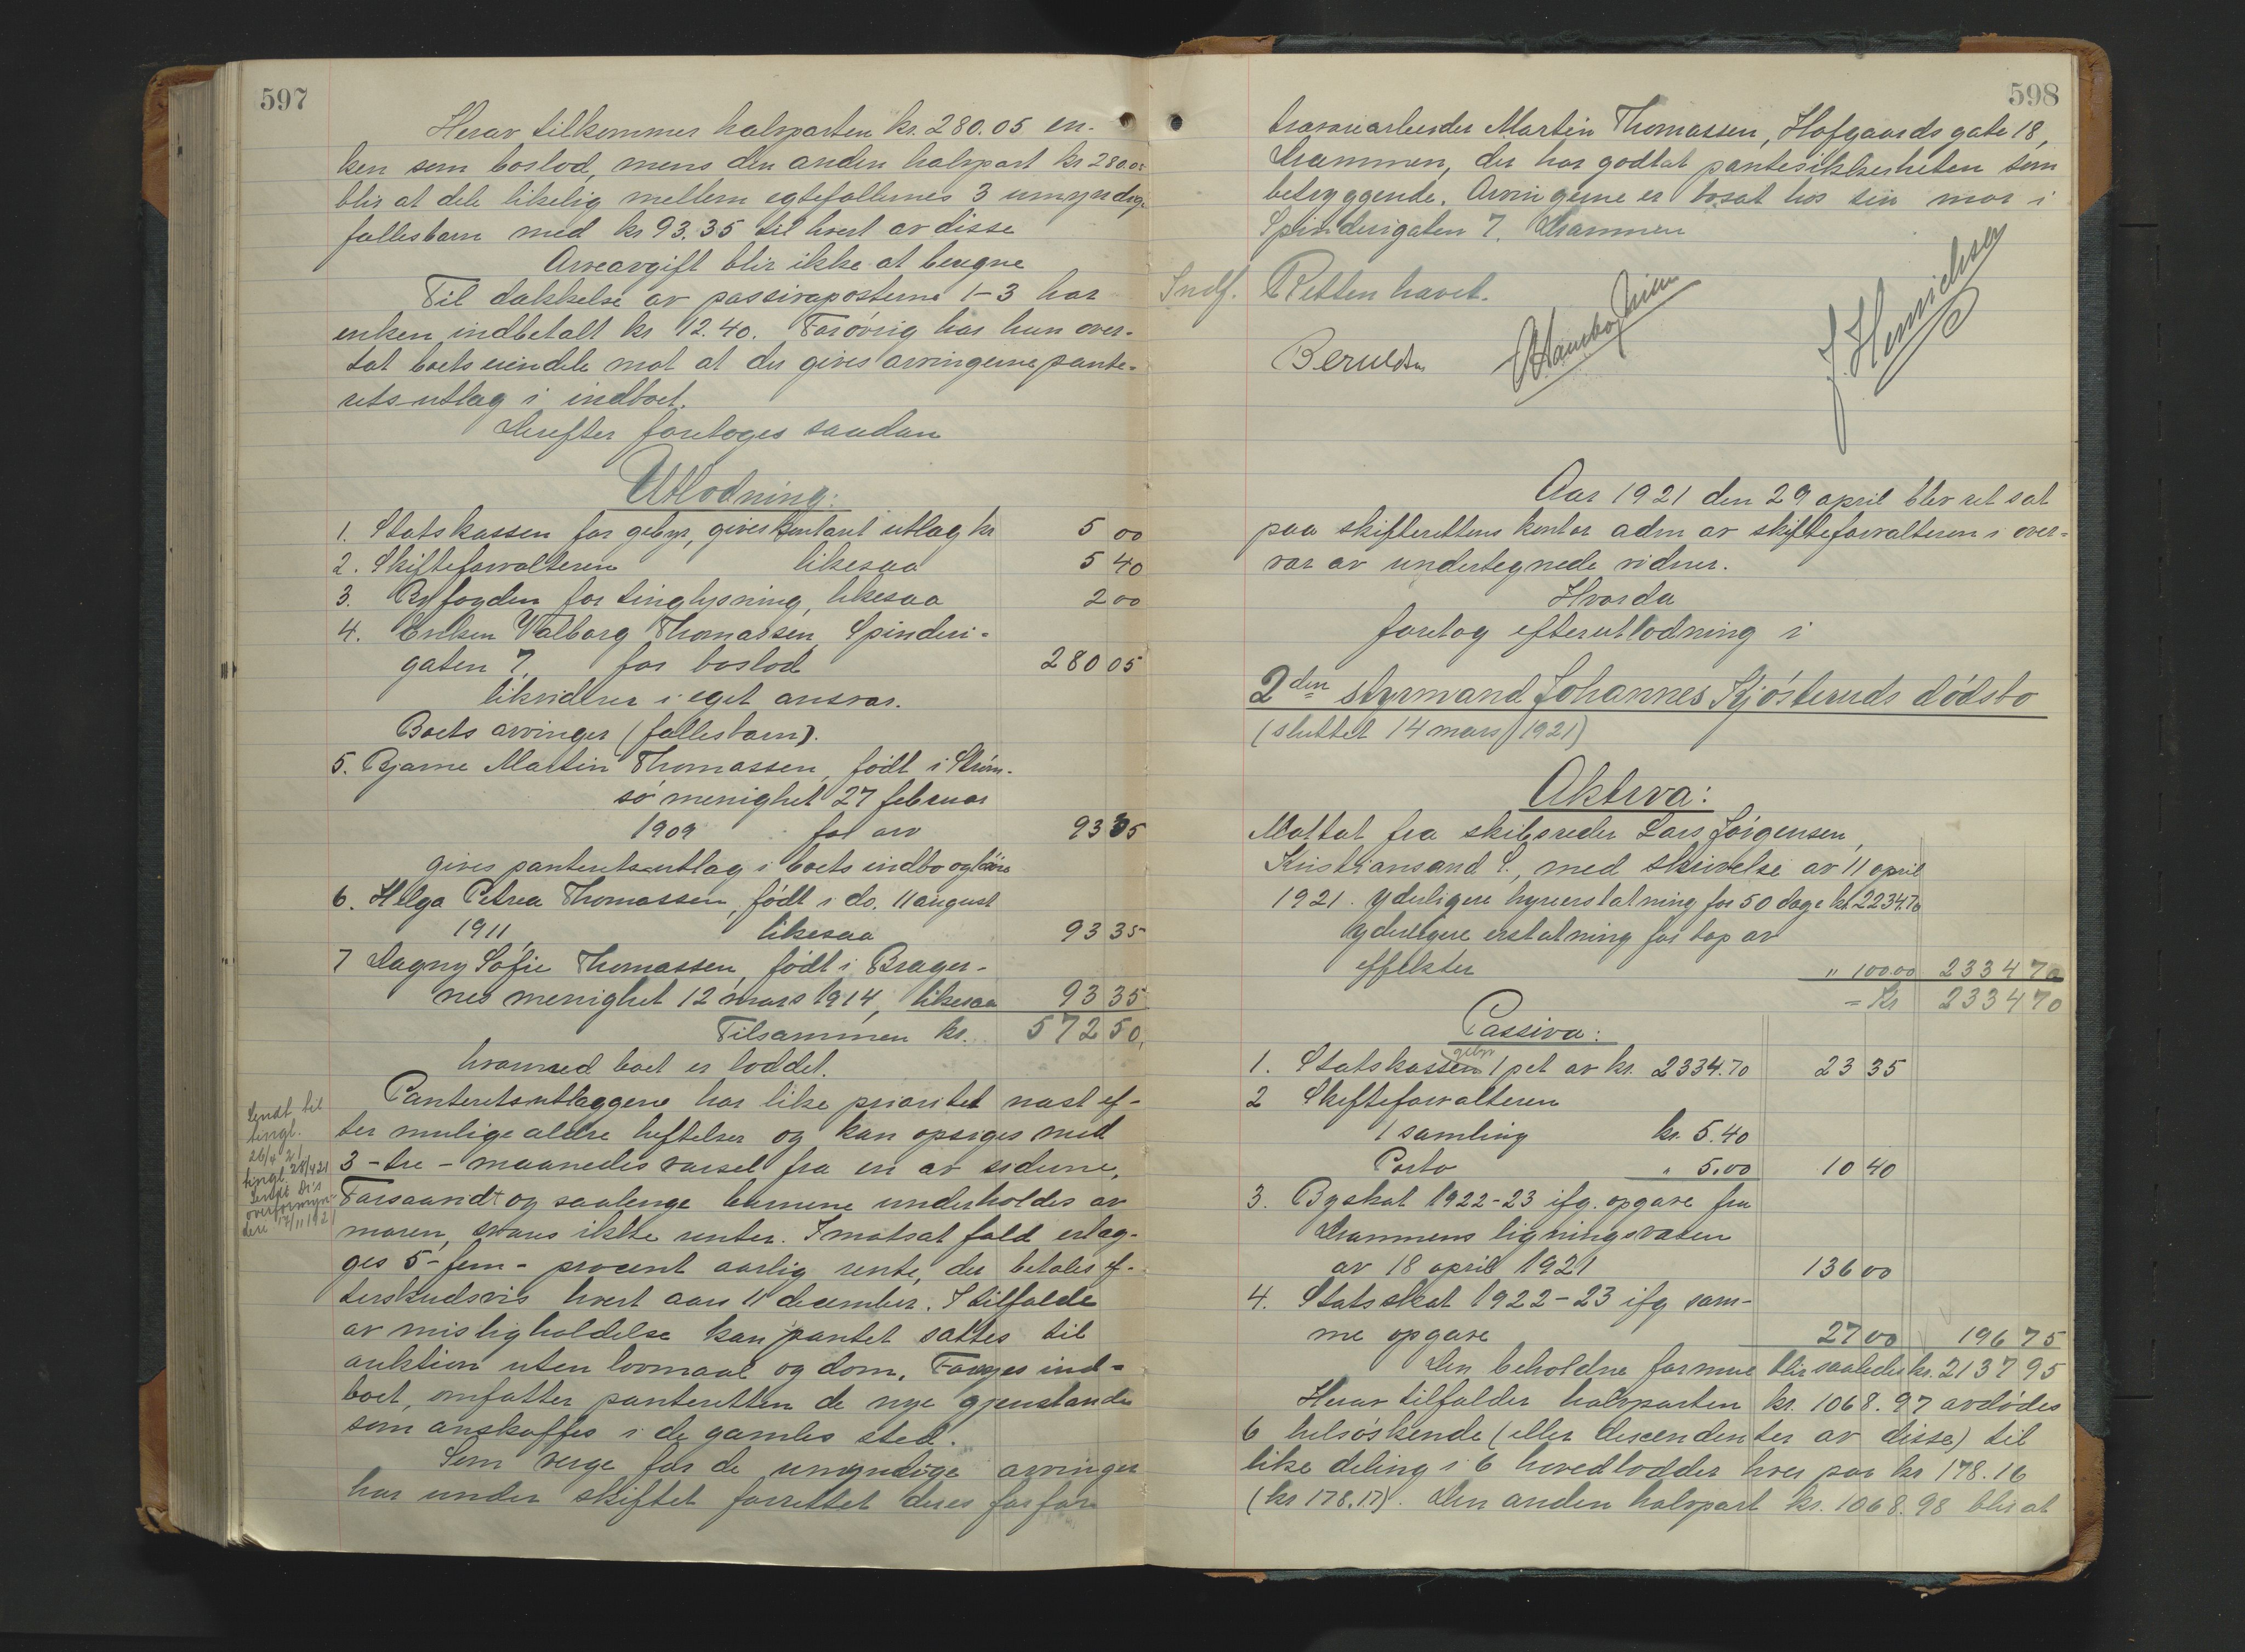 597
Herav tilkommer halvparten kr. 280.05 en-
ken som boslod, mens den anden halvpart kr 280.05
blir at dele likelig mellem egtefællernes 3 umyndige
fællesbarn med kr 93.35 til hvert av disse
Arveavgift blir ikke at beregne
Til dækkelse av passivaposterne 1-3 har
enken indbetalt kr 12.40. Forøvrig har hun over-
tat boets eiendele mot at der gives arvingerne pante-
retsutlæg i indboet.
Derefter foretoges saadan
Utlodning:
1. Statskassen for gebyr, gives kontant utlæg kr 5 00
2. Skifteforvalteren likesaa 5 40
3. Byfogden for tinglysning, likesaa 2 00
4. Enken Valborg Thomassen, Spinderi-
gaten 7, for boslod 280 05
likviderer i eget ansvar.
Boets arvinger (fællesbarn).
5. Bjarne Martin Thomassen, født i Strøm-
sø menighet 27 februar
1909 for arv 93 35
gives panteretsutlæg i boets indbo og løsøre
6. Helga Petrea Thomassen, født i do. 11 august
1911 likesaa 93 35
7 Dagny Sofie Thomassen, født i Brager-
nes menighet 12 mars 1914, likesaa 93 35
Tilsammen kr. 572 50,
hvormed boet er loddet.
Panteretsutlæggene har like prioritet næst ef-
ter mulige ældre heftelser og kan opsiges med
3 - tre - maaneders varsel fra en av siderne.
Forsaavidt og saalenge barnene underholdes av
moren, svares ikke renter. I motsat fald erlæg-
ges 5 - fem - procent aarlig rente, der betales ef-
terskudsvis hvert aars 11 december. I tilfælde
av misligholdelse kan pantet sættes til
auktion uten lovmaal og dom. Forøges ind-
boet, omfatter panteretten de nye gjenstande
som anskaffes i de gamles sted.
Som verge for de umyndige arvinger
har under skiftet forrettet deres farfar
Sendt til
tingl.
26/4 21
tingl. 28/4 21
Sendt Dr.s
overformyn-
deri 17/11 1921
598
travarearbeider Martin Thomassen, Hofgaards gate 18,
Drammen, der har godtat pantesikkerheten som
betryggende. Arvingerne er bosat hos sin mor i
Spinderigaten 7, Drammen
Indf. Retten hævet.
J. Henrichsen
Aar 1921 den 29 april blev ret sat
paa skifterettens kontor adm av skifteforvalteren i over-
vær av undertegnede vidner.
Hvorda
foretog efterutlodning i
2den styrmand Johannes Kjøsteruds dødsbo
(sluttet 14 mars 1921)
Aktiva:
Mottat fra skibsreder Lars Jørgensen,
Kristiansand S., med skrivelse av 11 april
1921. Yderligere hyreerstatning for 50 dage kr. 2234.70
Yderligere erstatning for tap av
effekter " 100.00 2334 70
= Kr 2334 70
Passiva:
gebyr
1. Statskassen 1 pct av kr. 2334.70 23 35
2 Skifteforvalteren
1 samling kr. 5.40
Porto " 5.00 10 40
3. Byskat 1922-23 ifg. opgave fra
Drammens ligningsvæsen
av 18 april 1921 136 00
4. Statsskat 1922-23 ifg sam-
me opgave 27 00 196 75
Den beholdne formue blir saaledes kr. 2137 95
Herav tilfalder halvparten kr. 1068.97 avdødes
6 helsøskende (eller descendenter av disse) til
like deling i 6 hovedlodder hver paa kr 178.16
(kr 178.17). Den anden halvpart kr. 1068.98 blir at